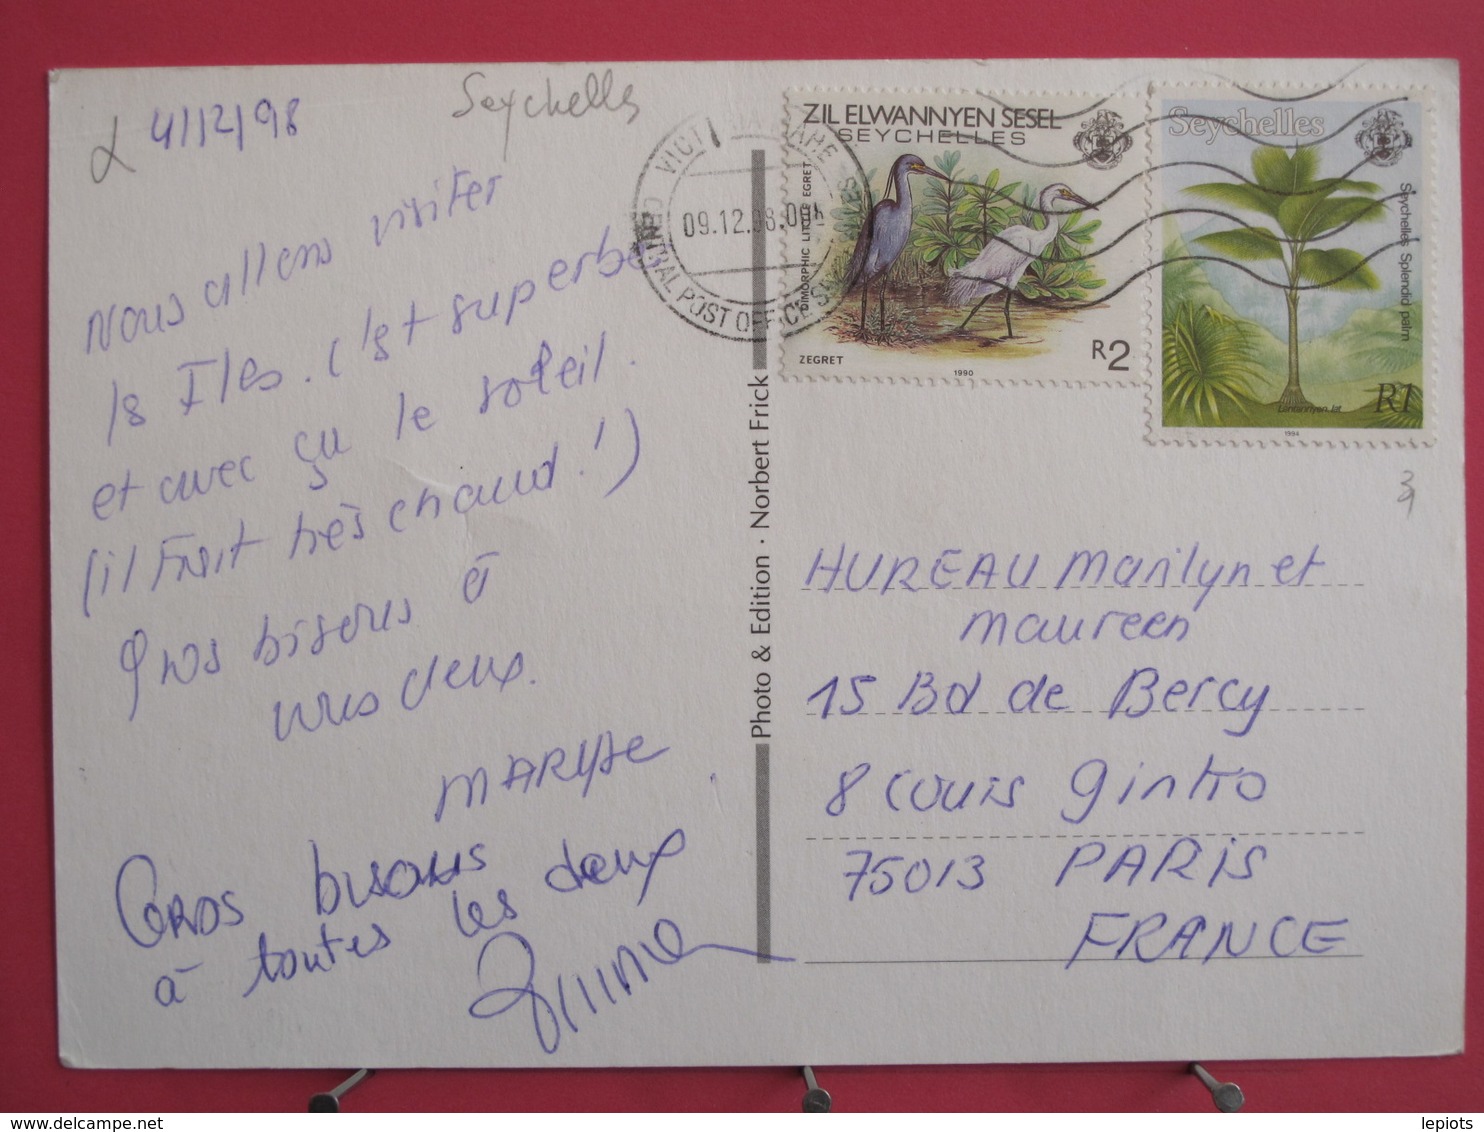 4/12/98
Seychelles
Nous allons visiter
les Iles. C'est superbe
et avec ça le soleil.
(il Fait très chaud !)
Gros bisous à
vous deux.
MARYSE
GROS bisous
à toutes les deux
ZIL ELWANNYEN SESEL
SEYCHELLES
DIMORPHIC LITTLE EGRET
ZEGRET
1990
R2
Seychelles
Seychelles Splendid palm
Latannyen lat
1994
R1
VICTORIA MAHE
09.12.98.00h
CENTRAL POST OFFICE SEYCHELLES
Photo & Edition · Norbert Frick
HUREAU Marilyn et
Maureen
15 Bd de Bercy
8 cours ginko
75013 PARIS
FRANCE
lepiots